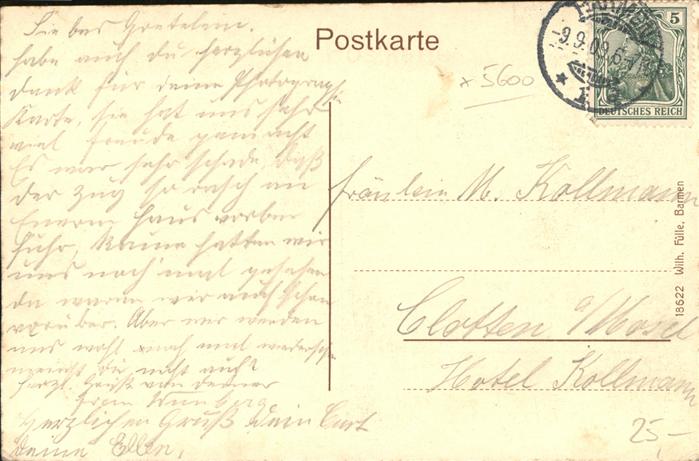 Postkarte
5
DEUTSCHES REICH
-9.9.09.6-7
* 1
x 5600
habe auch du herzlichen
Dank für deine Photograph
Karte, sie hat uns sehr
viel Freude gemacht
Es war sehr schade, daß
der Zug so rasch an
Haus vorbei
fuhr, hatten wir
uns noch mal gesehen
da waren wir auch schon
vorüber. Aber wir werden
uns wohl noch mal wiedersehen
du nicht auch?
herzl. Gruß von deiner
Herzlichen Gruß Dein Curt
Deine Ellen,
Fräulein M. Kollmann
Clotten a/Mosel
Hotel Kollmann
25,-
18622 Wilh. Fülle, Barmen